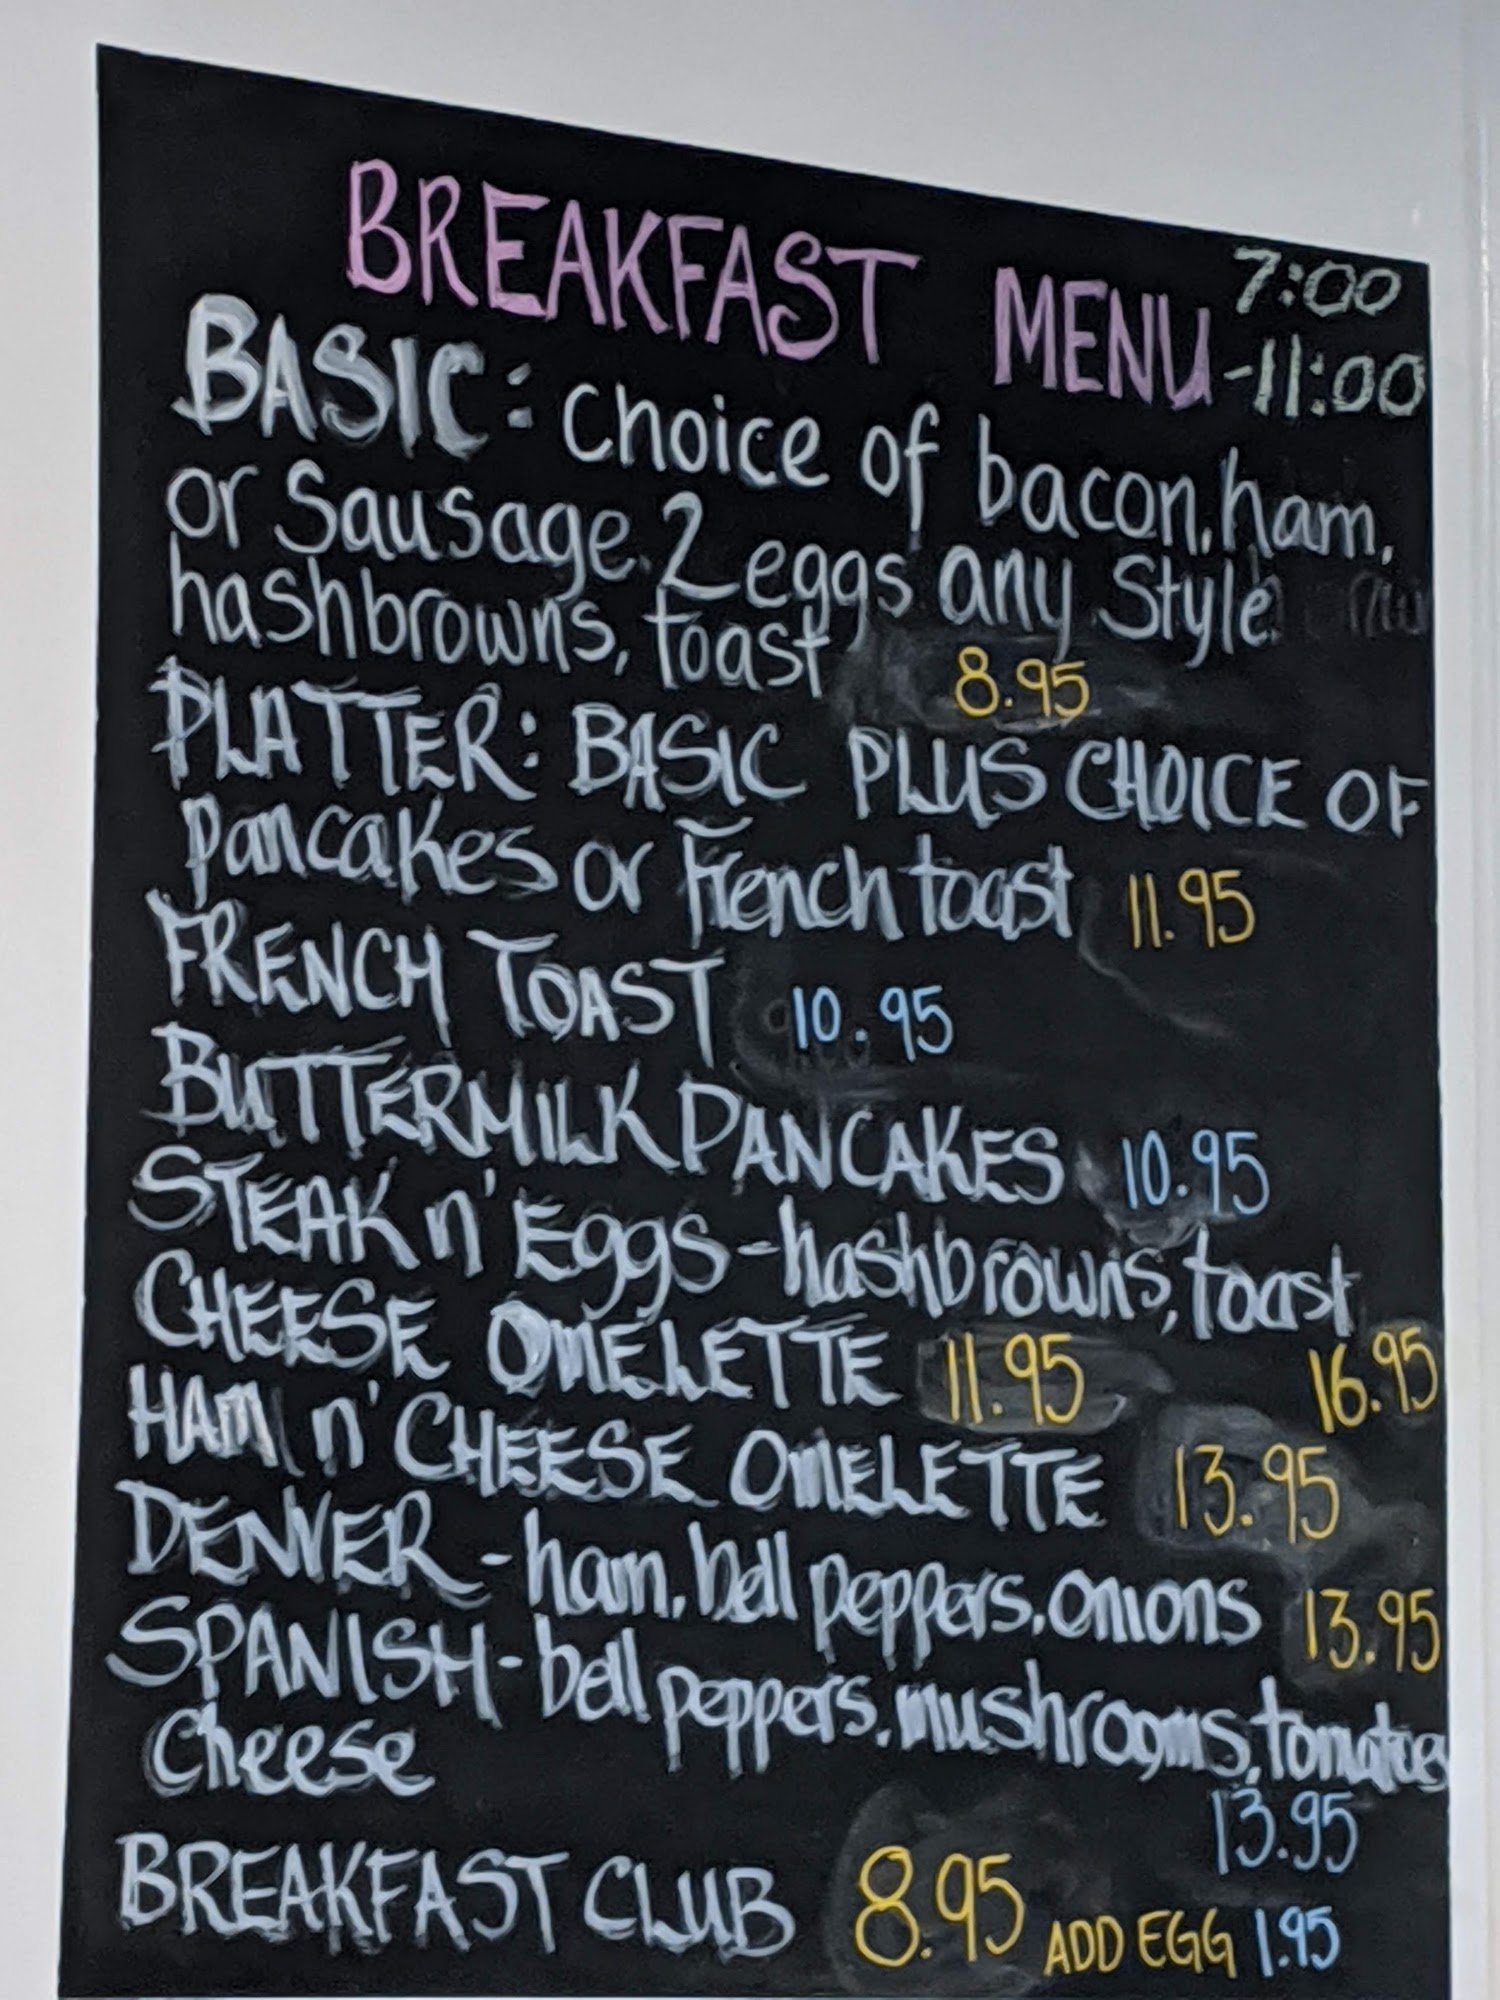 BREAKFAST MENU 7:00
-11:00
BASIC: choice of bacon, ham,
or Sausage. 2 eggs any Style
hashbrowns, toast 8.95
PLATTER: BASIC PLUS CHOICE OF
pancakes or French toast 11.95
FRENCH TOAST 10.95
BUTTERMILK PANCAKES 10.95
STEAK n' Eggs - hashbrowns, toast
16.95
CHEESE OMELETTE 11.95
HAM n' CHEESE OMELETTE 13.95
DENVER - ham, bell peppers, onions 13.95
SPANISH - bell peppers, mushrooms, tomatoes
Cheese
13.95
BREAKFAST CLUB 8.95 ADD EGG 1.95